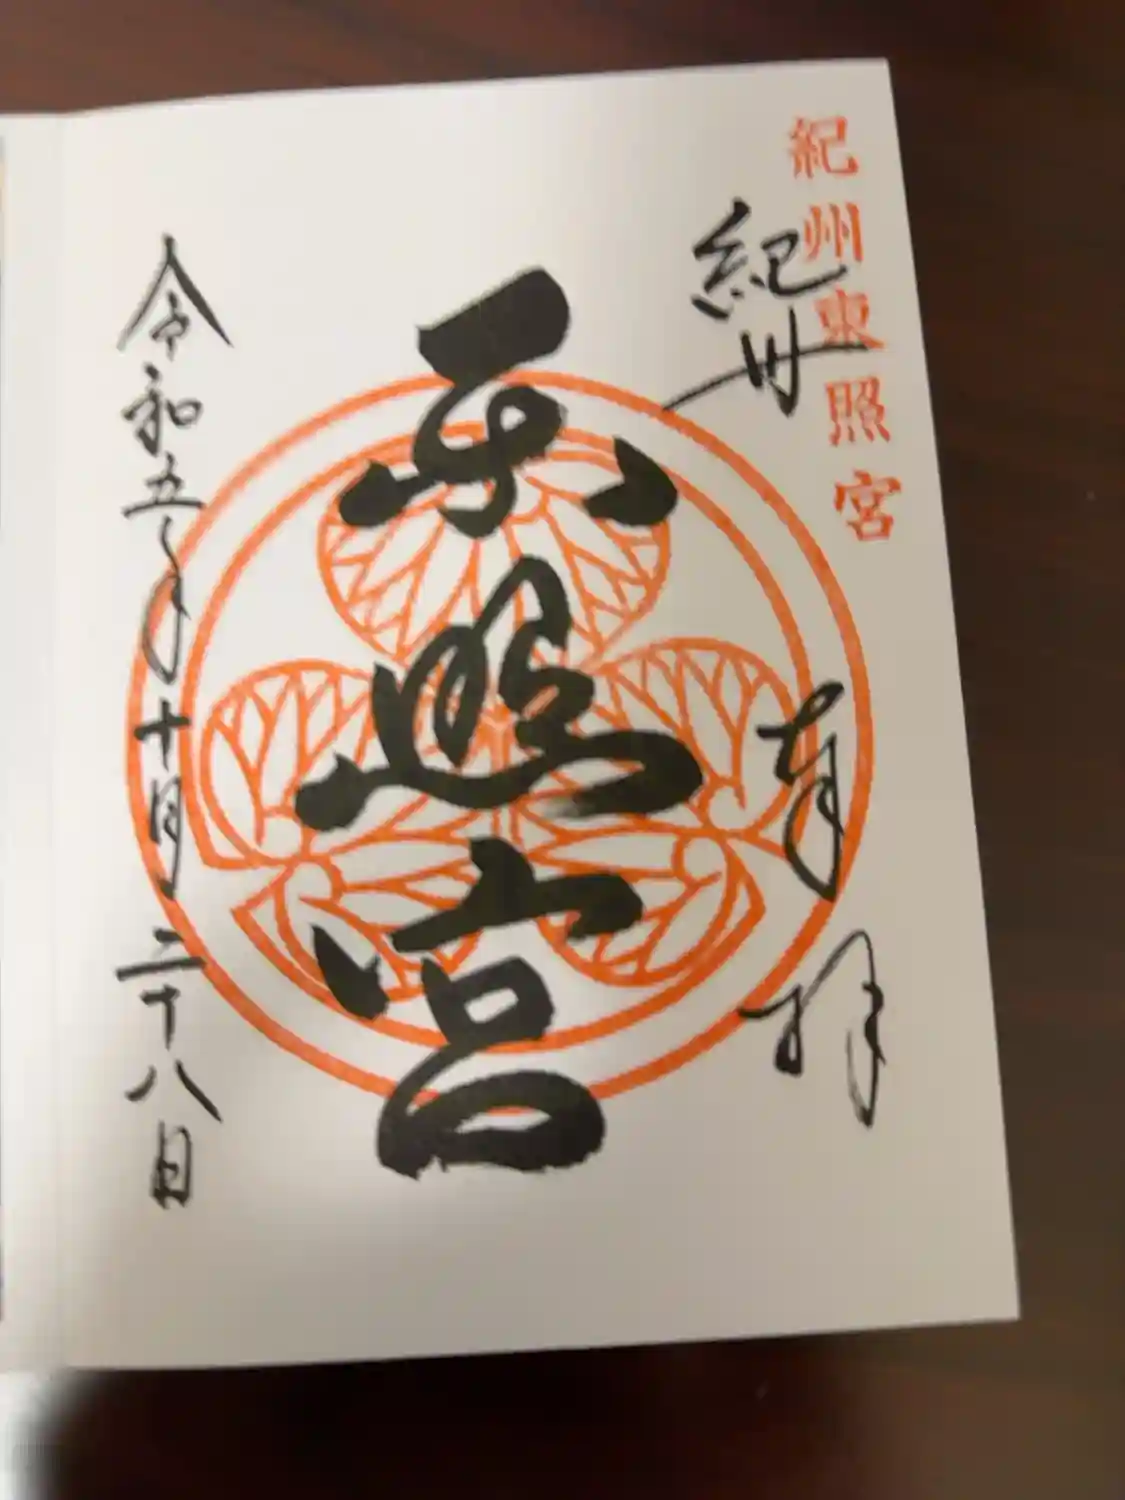 紀州東照宮
紀州
奉拝
東照宮
令和五年十月二十八日